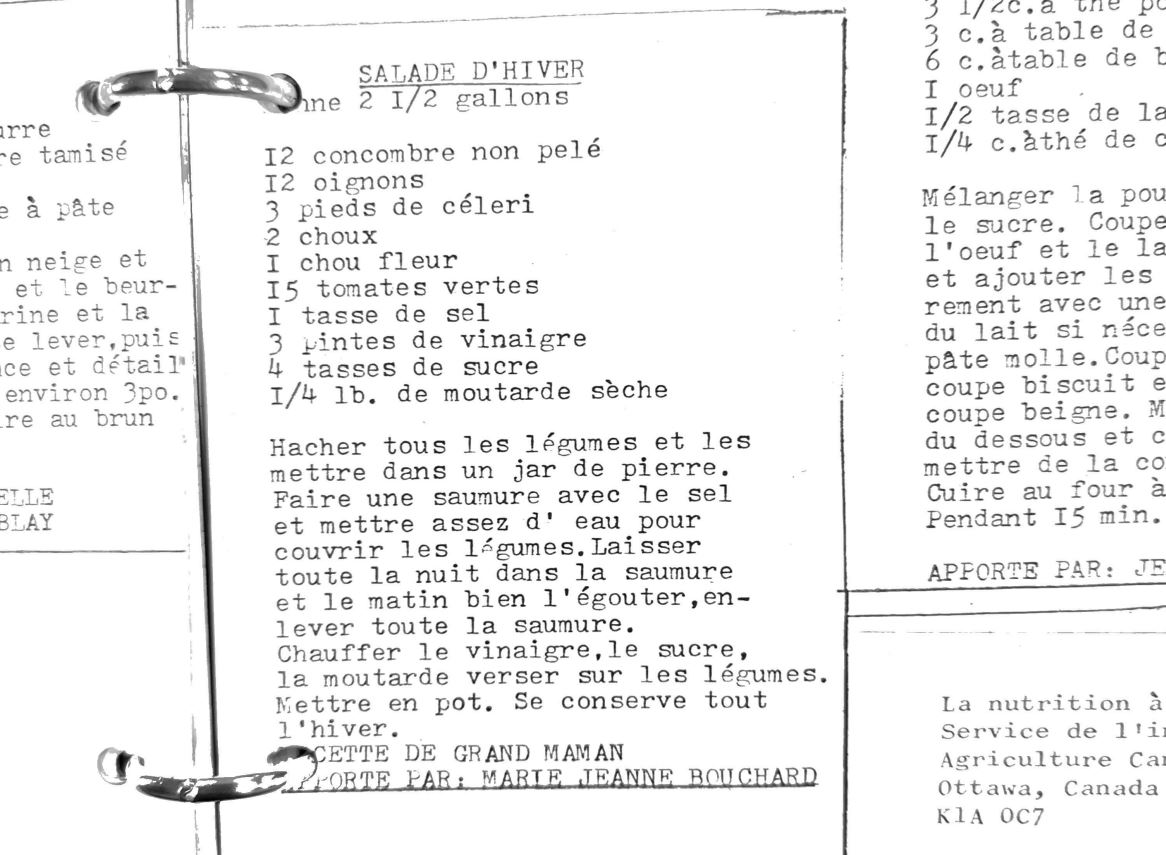 re tamisé
e à pâte
n neige et
et le beur-
rine et la
e lever,puis
ce et détail
environ 3po.
re au brun
ELLE
BLAY
SALADE D'HIVER
nne 2 I/2 gallons
I2 concombre non pelé
I2 oignons
3 pieds de céleri
2 choux
I chou fleur
I5 tomates vertes
I tasse de sel
3 pintes de vinaigre
4 tasses de sucre
I/4 lb. de moutarde sèche
Hacher tous les légumes et les
mettre dans un jar de pierre.
Faire une saumure avec le sel
et mettre assez d' eau pour
couvrir les légumes.Laisser
toute la nuit dans la saumure
et le matin bien l'égouter,en-
lever toute la saumure.
Chauffer le vinaigre,le sucre,
la moutarde verser sur les légumes.
Mettre en pot. Se conserve tout
l'hiver.
CETTE DE GRAND MAMAN
PPORTE PAR: MARIE JEANNE BOUCHARD
3 I/2c.à thé po
3 c.à table de
6 c.àtable de b
I oeuf
I/2 tasse de la
I/4 c.àthé de c
Mélanger la pou
le sucre. Coupe
l'oeuf et le la
et ajouter les
rement avec une
du lait si néce
pâte molle.Coup
coupe biscuit e
coupe beigne. M
du dessous et c
mettre de la co
Cuire au four à
Pendant I5 min.
APPORTE PAR: JE
La nutrition à
Service de l'in
Agriculture Can
Ottawa, Canada
K1A OC7